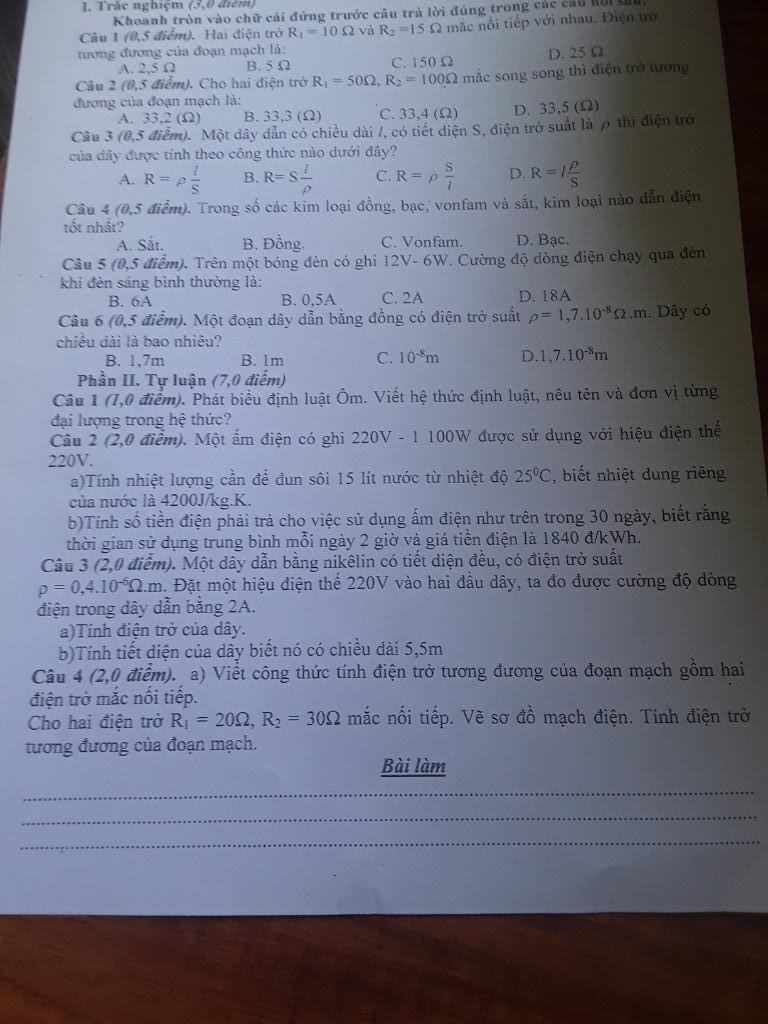 I. Trắc nghiệm (3,0 điểm)
Khoanh tròn vào chữ cái đứng trước câu trả lời đúng trong các câu hỏi sau.
Câu 1 (0,5 điểm). Hai điện trở R₁ = 10 Ω và R₂ =15 Ω mắc nối tiếp với nhau. Điện trở
tương đương của đoạn mạch là:
A. 2,5 Ω B. 5 Ω C. 150 Ω D. 25 Ω
Câu 2 (0,5 điểm). Cho hai điện trở R₁ = 50Ω, R₂ = 100Ω mắc song song thì điện trở tương
đương của đoạn mạch là:
A. 33,2 (Ω) B. 33,3 (Ω) C. 33,4 (Ω) D. 33,5 (Ω)
Câu 3 (0,5 điểm). Một dây dẫn có chiều dài l, có tiết diện S, điện trở suất là ρ thì điện trở
của dây được tính theo công thức nào dưới đây?
A. R = ρ l/S B. R= S l/ρ C. R = ρ S/l D. R = l ρ/S
Câu 4 (0,5 điểm). Trong số các kim loại đồng, bạc, vonfam và sắt, kim loại nào dẫn điện
tốt nhất?
A. Sắt. B. Đồng. C. Vonfam. D. Bạc.
Câu 5 (0,5 điểm). Trên một bóng đèn có ghi 12V- 6W. Cường độ dòng điện chạy qua đèn
khi đèn sáng bình thường là:
B. 6A B. 0,5A C. 2A D. 18A
Câu 6 (0,5 điểm). Một đoạn dây dẫn bằng đồng có điện trở suất ρ= 1,7.10⁻⁸Ω.m. Dây có
chiều dài là bao nhiêu?
B. 1,7m B. 1m C. 10⁻⁸m D.1,7.10⁻⁸m
Phần II. Tự luận (7,0 điểm)
Câu 1 (1,0 điểm). Phát biểu định luật Ôm. Viết hệ thức định luật, nêu tên và đơn vị từng
đại lượng trong hệ thức?
Câu 2 (2,0 điểm). Một ấm điện có ghi 220V - 1 100W được sử dụng với hiệu điện thế
220V.
a)Tính nhiệt lượng cần để đun sôi 15 lít nước từ nhiệt độ 25⁰C, biết nhiệt dung riêng
của nước là 4200J/kg.K.
b)Tính số tiền điện phải trả cho việc sử dụng ấm điện như trên trong 30 ngày, biết rằng
thời gian sử dụng trung bình mỗi ngày 2 giờ và giá tiền điện là 1840 đ/kWh.
Câu 3 (2,0 điểm). Một dây dẫn bằng nikêlin có tiết diện đều, có điện trở suất
ρ = 0,4.10⁻⁶Ω.m. Đặt một hiệu điện thế 220V vào hai đầu dây, ta đo được cường độ dòng
điện trong dây dẫn bằng 2A.
a)Tính điện trở của dây.
b)Tính tiết diện của dây biết nó có chiều dài 5,5m
Câu 4 (2,0 điểm). a) Viết công thức tính điện trở tương đương của đoạn mạch gồm hai
điện trở mắc nối tiếp.
Cho hai điện trở R₁ = 20Ω, R₂ = 30Ω mắc nối tiếp. Vẽ sơ đồ mạch điện. Tính điện trở
tương đương của đoạn mạch.
Bài làm